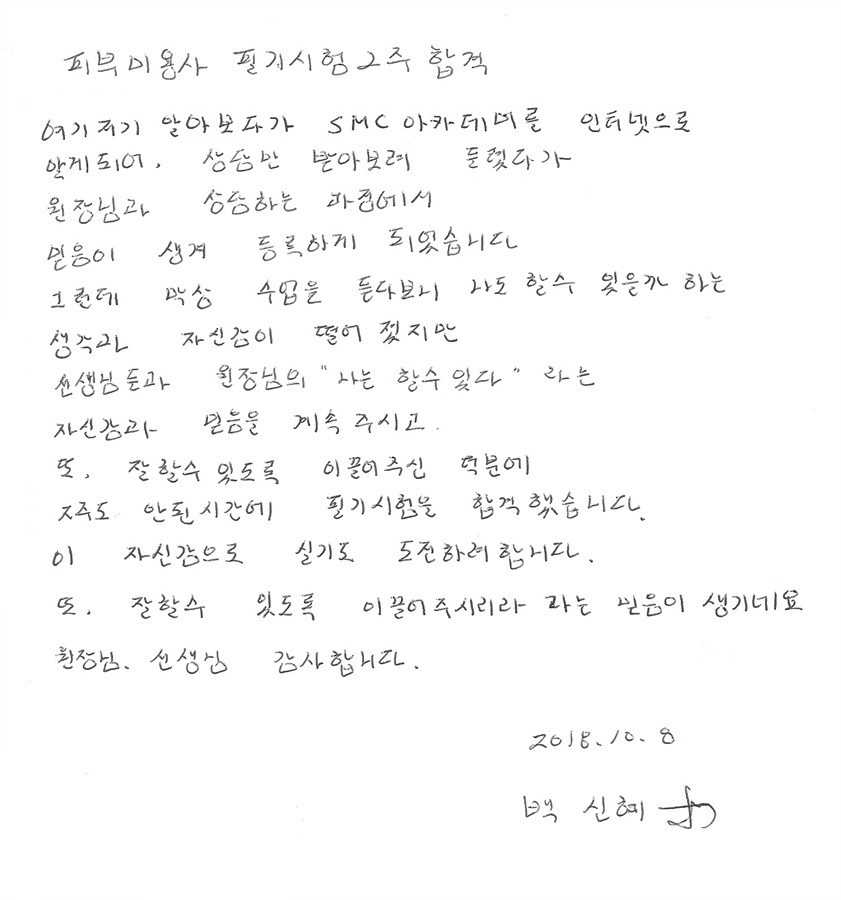 피부미용사 필기시험 2주 합격
여기저기 알아보다가 SMC아카데미를 인터넷으로
알게되어, 상담만 받아보려 들렸다가
원장님과 상담하는 과정에서
믿음이 생겨 등록하게 되었습니다
그런데 막상 수업을 듣다보니 나도 할수 있을까 하는
생각과 자신감이 떨어졌지만
선생님들과 원장님의 "나는 할수있다" 라는
자신감과 믿음을 계속 주시고.
또, 잘할수 있도록 이끌어주신 덕분에
2주도 안된시간에 필기시험을 합격했습니다.
이 자신감으로 실기도 도전하려합니다.
또, 잘할수 있도록 이끌어주시리라 라는 믿음이 생기네요
원장님, 선생님 감사합니다.
2018.10.8
백 신혜